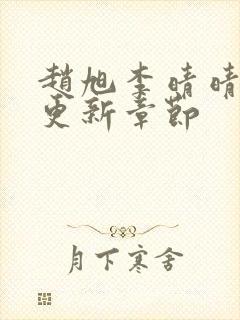 趙旭李晴晴
更新章節
月下寒舍